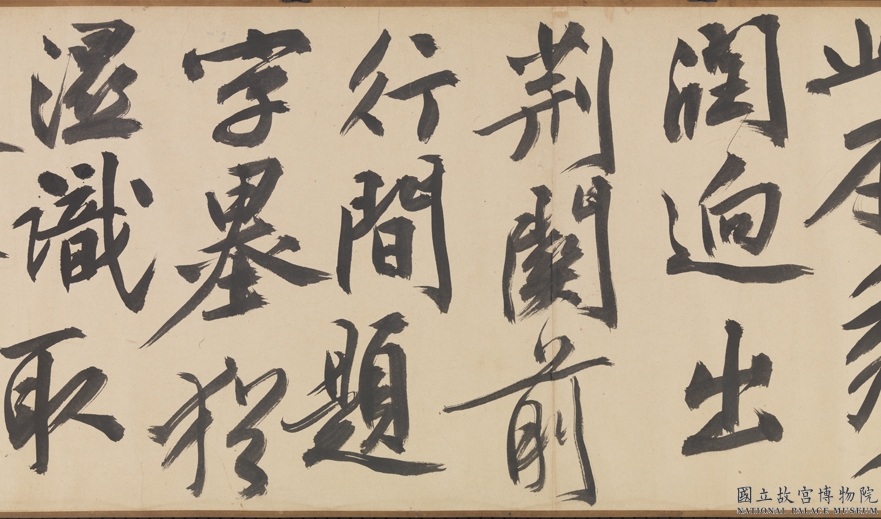 潤逈出
荊關前
行間題
字墨猶
濕識取
國立故宮博物院
NATIONAL PALACE MUSEUM